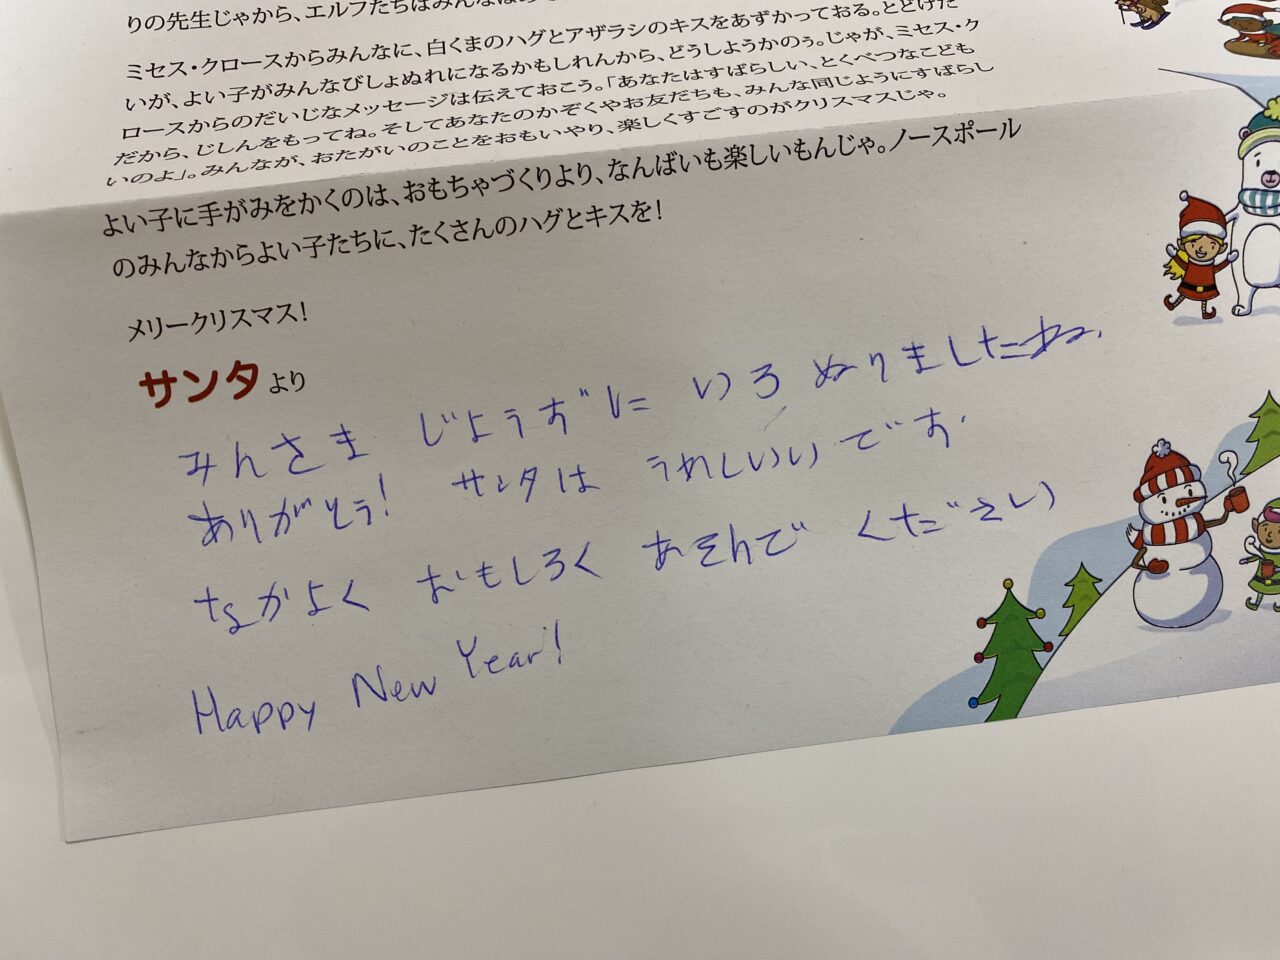 りの先生じゃから、エルフたちはみんな
ミセス・クロースからみんなに、白くまのハグとアザラシのキスをあずかっておる。とどけた
いが、よい子がみんなびしょぬれになるかもしれんから、どうしようかのぅ。じゃが、ミセス・ク
ロースからのだいじなメッセージは伝えておこう。「あなたはすばらしい、とくべつなこども
だから、じしんをもってね。そしてあなたのかぞくやお友だちも、みんな同じようにすばらし
いのよ」。みんなが、おたがいのことをおもいやり、楽しくすごすのがクリスマスじゃ。
よい子に手がみをかくのは、おもちゃづくりより、なんばいも楽しいもんじゃ。ノースポール
のみんなからよい子たちに、たくさんのハグとキスを!
メリークリスマス!
サンタより
みんさま じようずに いろ ぬりましたね.
ありがとう! サンタは うれしいいです.
なかよく おもしろく あそんで ください
Happy New Year!